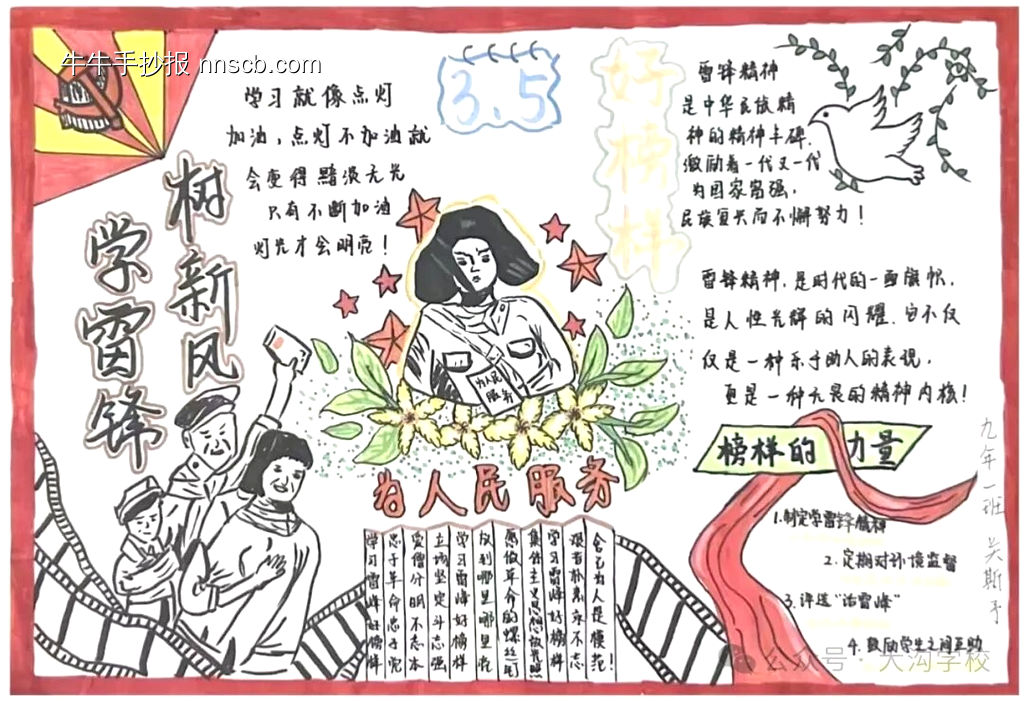 牛牛手抄报 nnscb.com
树新风
学雷锋
学习就像点灯
加油，点灯不加油就
会变得黯淡无光
只有不断加油
灯光才会明亮！
3.5
好榜样
雷锋精神
是中华民族精
神的精神丰碑，
激励着一代又一代
为国家富强，
民族复兴而不懈努力！
雷锋精神，是时代的一面旗帜，
是人性光辉的闪耀，它不仅
仅是一种乐于助人的表现，
更是一种无畏的精神内核！
为人民
服务
为人民服务
学习雷锋好榜样
忠于革命忠于党
爱憎分明不忘本
立场坚定斗志强
学习雷锋好榜样
哪里哪里
愿做革命的螺丝钉
集体主义思想放光辉
学习雷锋好榜样
艰苦朴素永不忘
为人是模范！
榜样的力量
1.制定学雷锋精神
2.定期对环境监督
3.评选“活雷峰”
4.鼓励学生之间互助
九年一班 吴斯予
公众号·大沟学校